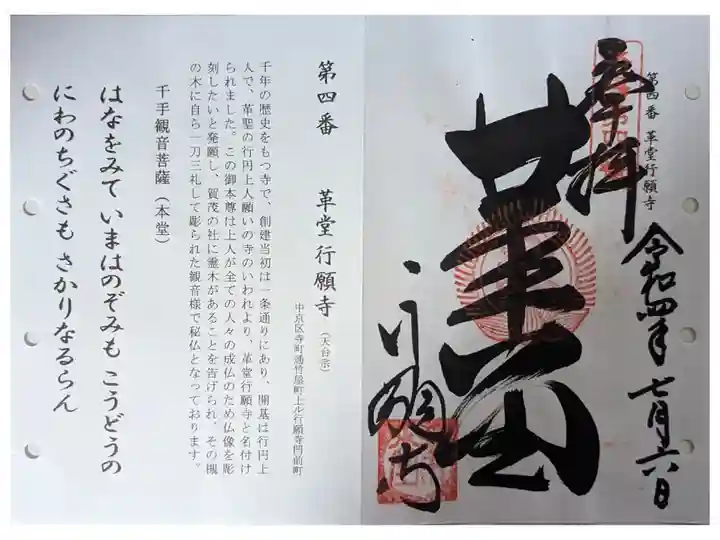 第四番 革堂行願寺
奉拝
革堂
行願寺
令和四年七月六日
第四番 革堂行願寺(天台宗)
中京区寺町通竹屋町上ル行願寺門前町
千年の歴史をもつ寺で、創建当初は一条通りにあり、開基は行円上
人で、革聖の行円上人願いの寺のいわれより、革堂行願寺と名付け
られました。この御本尊は上人が全ての人々の成仏のため仏像を彫
刻したいと発願し、賀茂の社に霊木があることを告げられ、その槻
の木に自ら一刀三礼して彫られた観音様で秘仏となっております。
千手観音菩薩(本堂)
はなをみて いまはのぞみも こうどうの
にわのちぐさも さかりなるらん